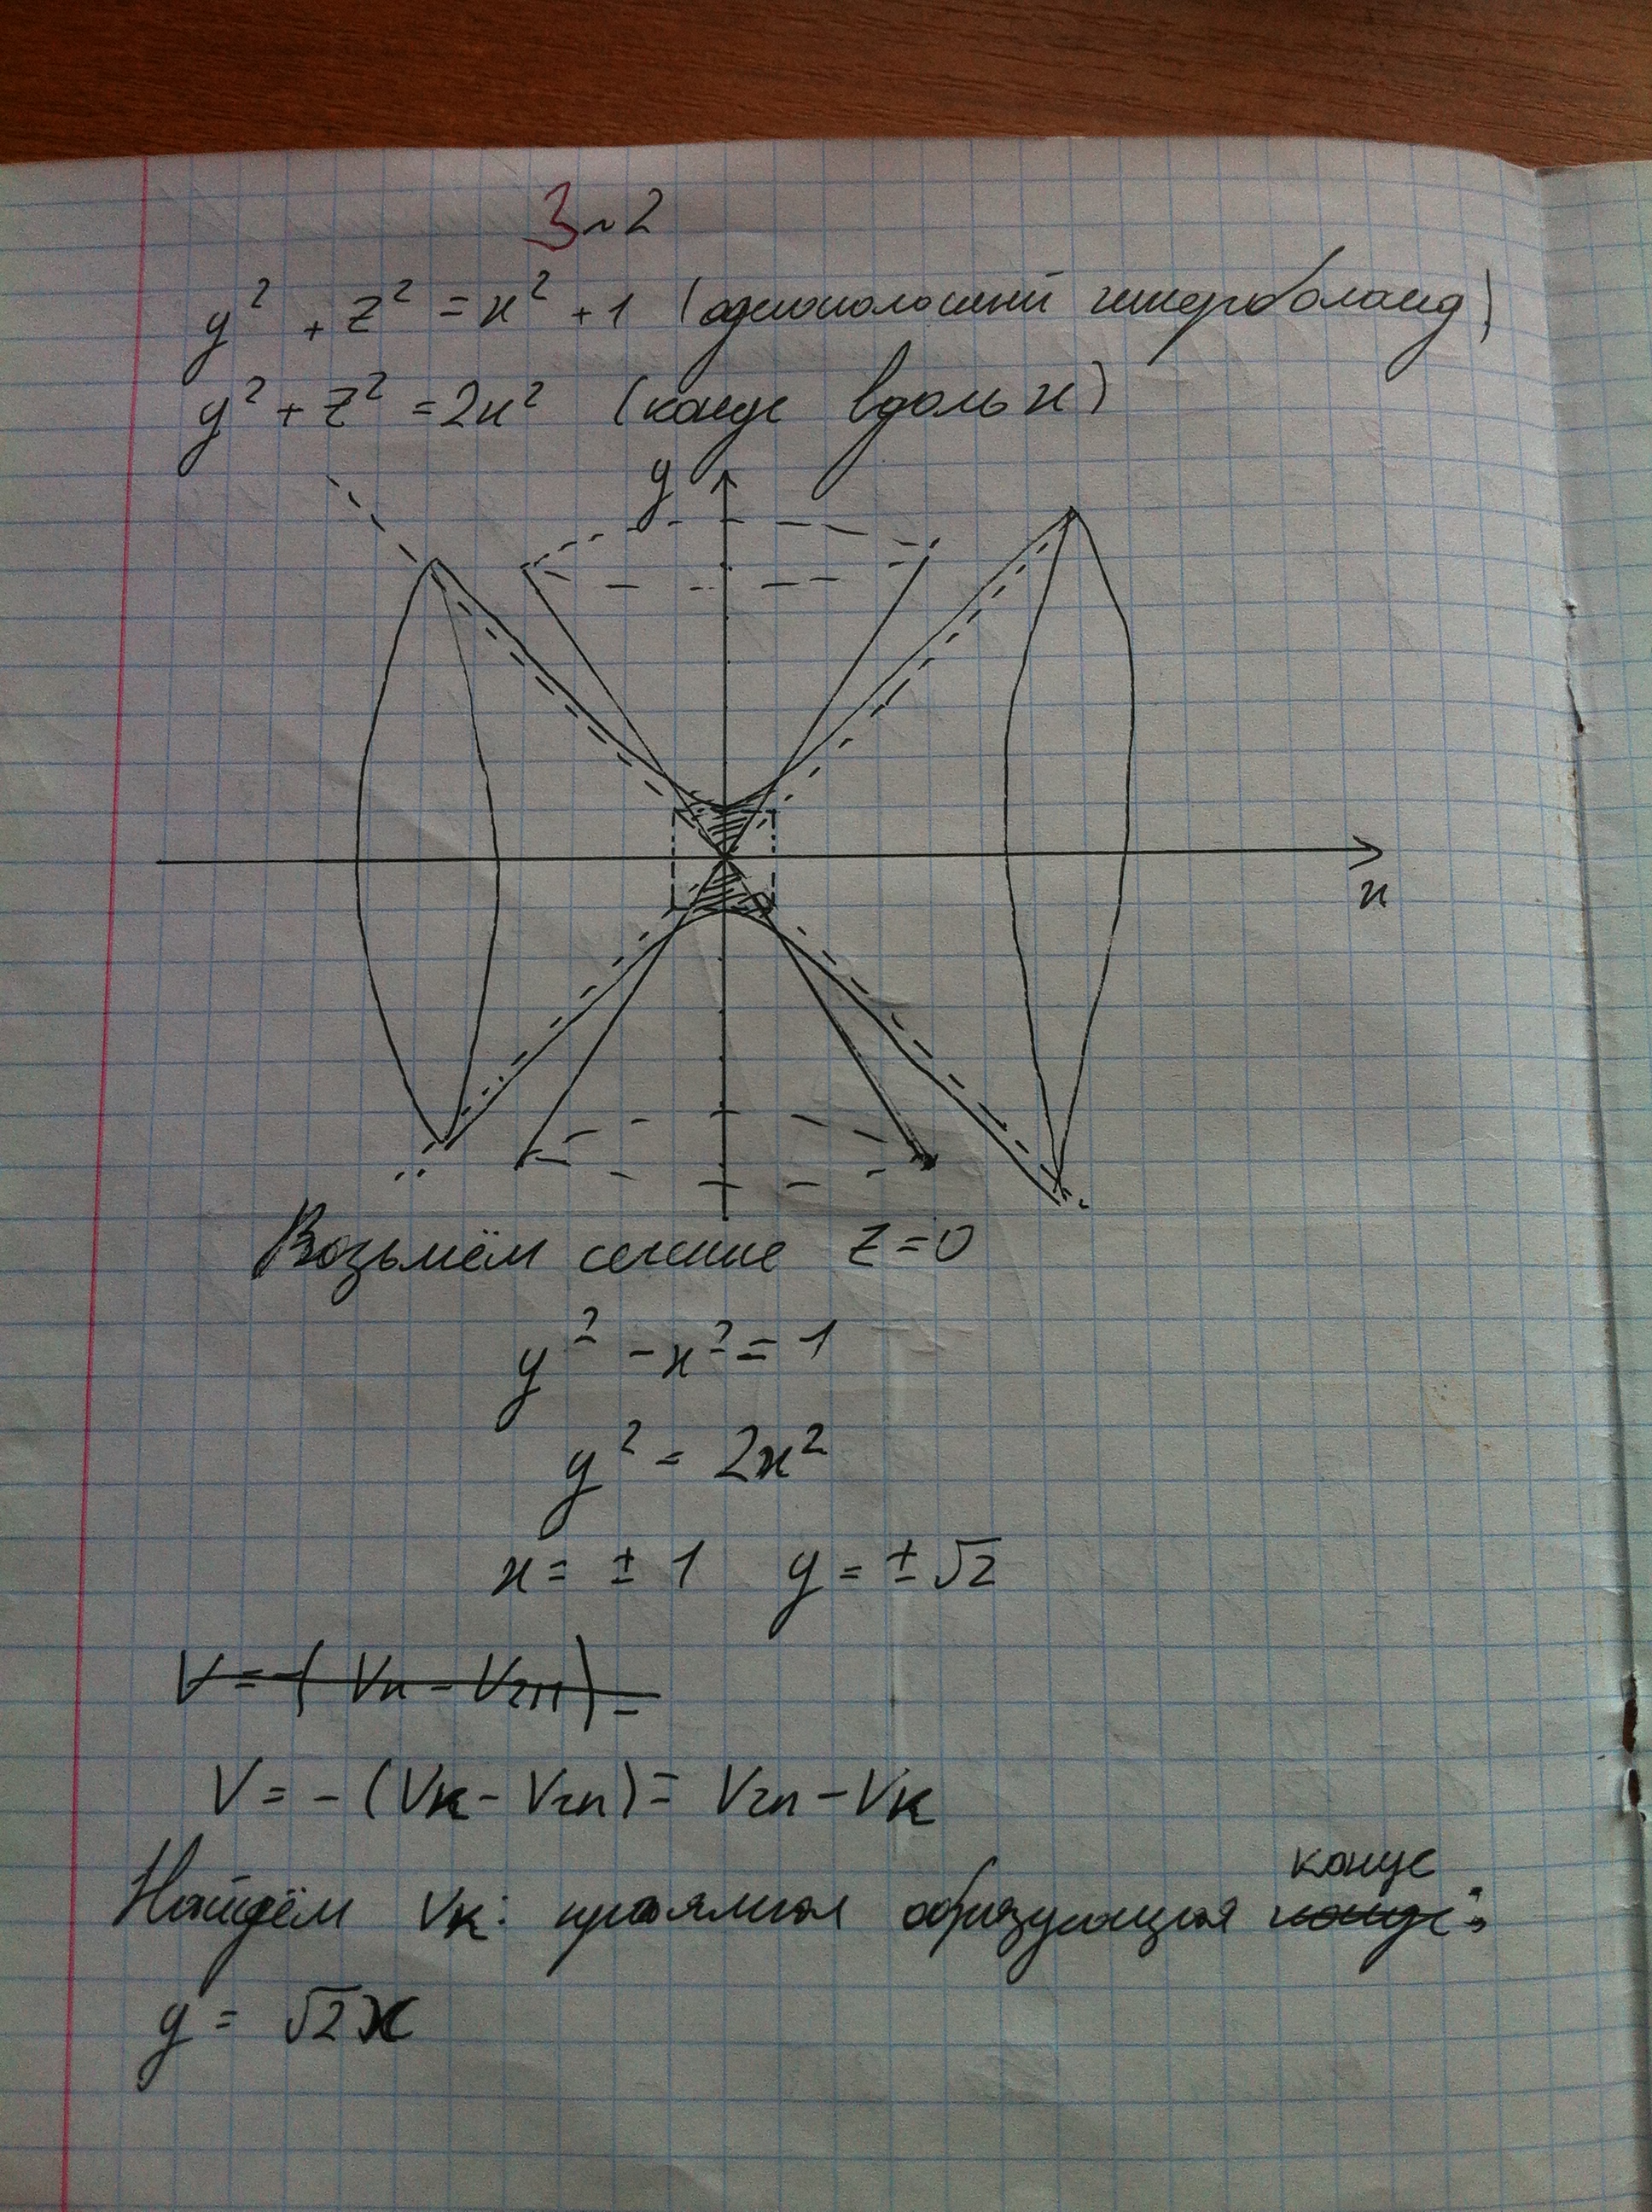 З~2
y² + z² = x² + 1 (однополостный гиперболоид)
y² + z² = 2x² (конус вдоль x)
y
x
Возьмём сечение z=0
y² - x² = 1
y² = 2x²
x = ± 1 y = ± √2
V = -(Vк - Vгп) =
V = -(Vк - Vгп) = Vгп - Vк
конус
Найдём Vк: прямая образующая конус:
y = √2x